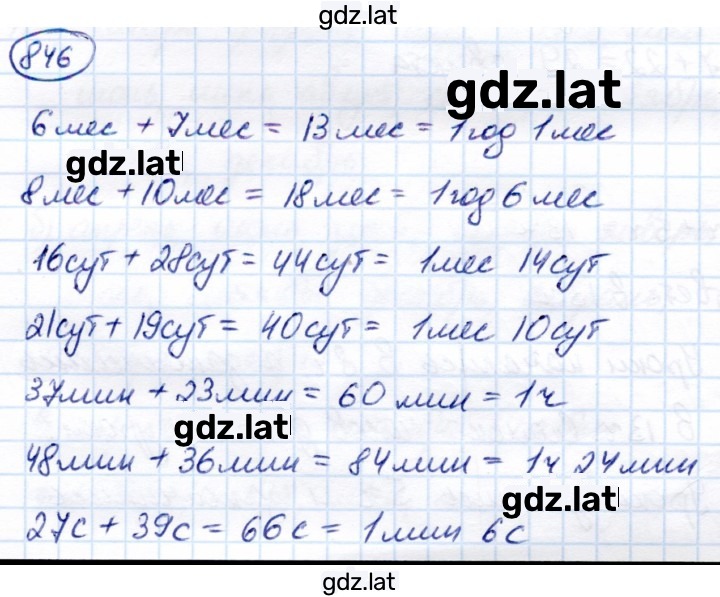 gdz.lat
846
gdz.lat
6 мес + 7 мес = 13 мес = 1 год 1 мес
gdz.lat
8 мес + 10 мес = 18 мес = 1 год 6 мес
16 сут + 28 сут = 44 сут = 1 мес 14 сут
21 сут + 19 сут = 40 сут = 1 мес 10 сут
37 мин + 23 мин = 60 мин = 1 ч
gdz.lat
48 мин + 36 мин = 84 мин = 1 ч 24 мин
gdz.lat
27 с + 39 с = 66 с = 1 мин 6 с
gdz.lat